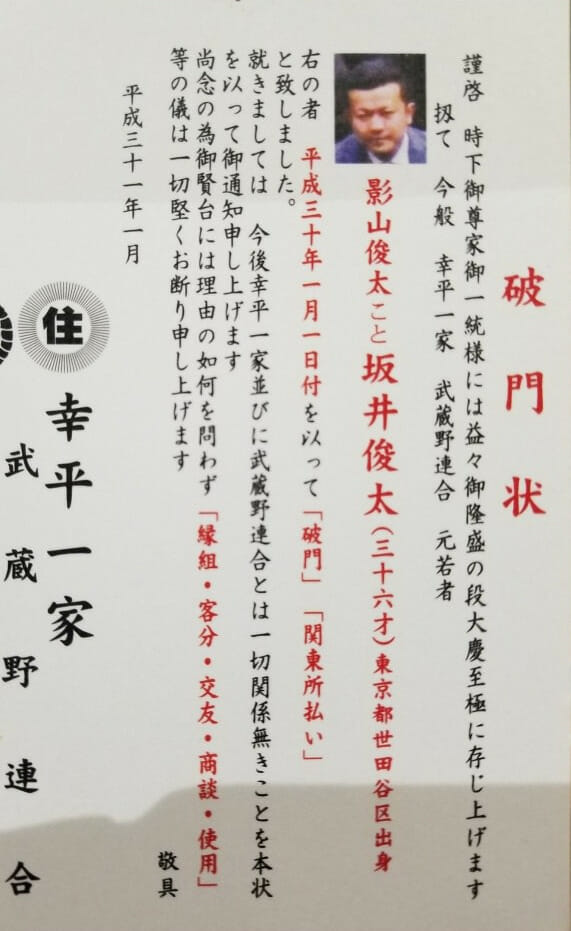 破門状
謹啓 時下御尊家御一統様には益々御隆盛の段大慶至極に存じ上げます
扨て 今般 幸平一家 武蔵野連合 元若者
影山俊太こと坂井俊太(三十六才)東京都世田谷区出身
右の者 平成三十年一月一日付を以って「破門」「関東所払い」
と致しました。
就きましては 今後幸平一家並びに武蔵野連合とは一切関係無きことを本状
を以って御通知申し上げます
尚念の為御賢台には理由の如何を問わず「縁組・客分・交友・商談・使用」
等の儀は一切堅くお断り申し上げます
敬具
平成三十一年一月
住
幸平一家
武蔵野連合